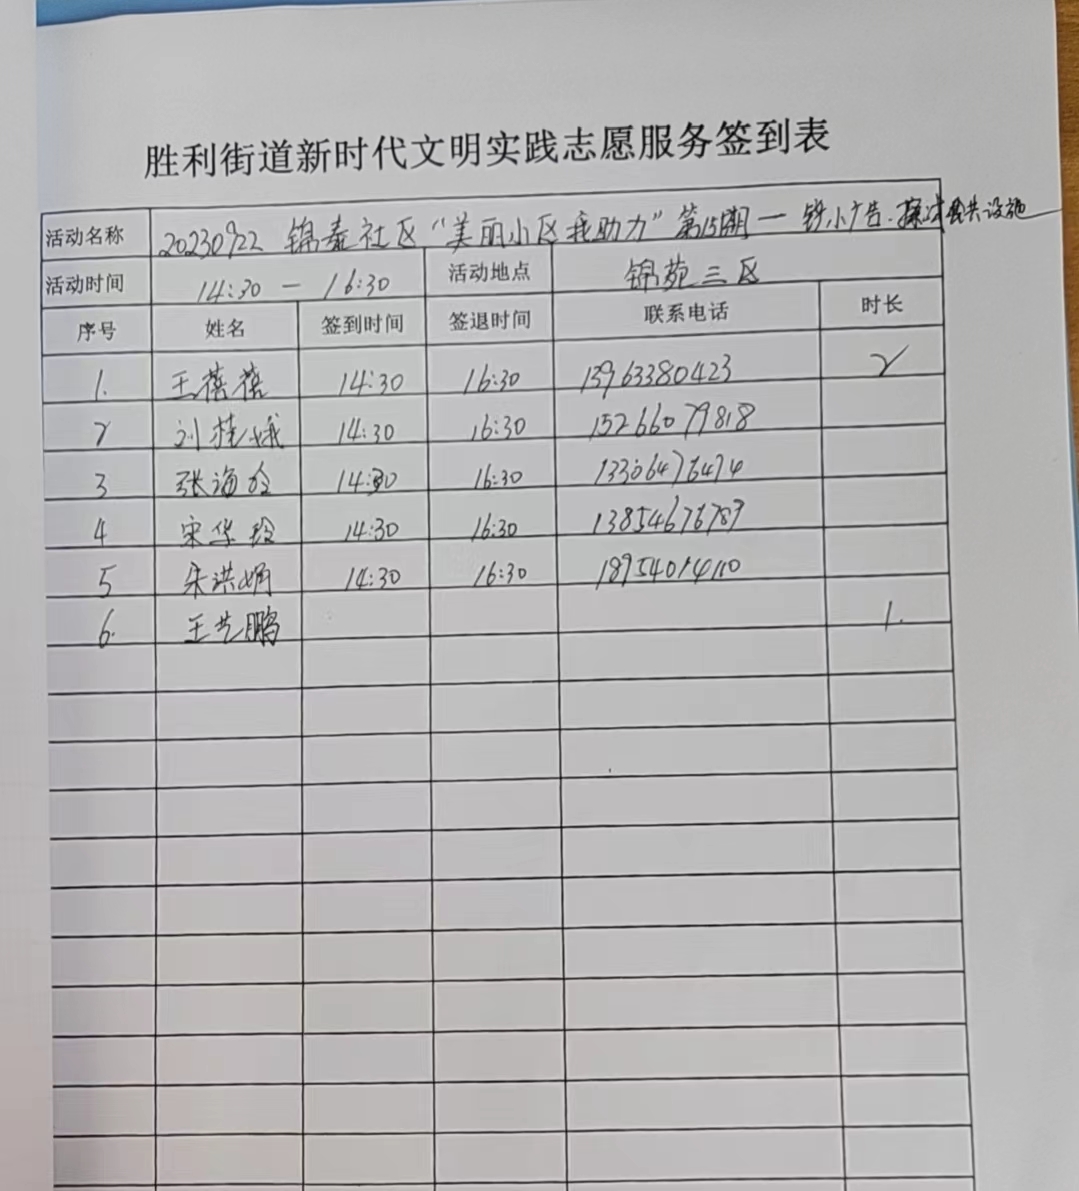 胜利街道新时代文明实践志愿服务签到表
活动名称 20230922 锦泰社区“美丽小区我助力”第15期一 铲小广告.擦拭公共设施
活动时间 14:30 — 16:30 活动地点 锦苑三区
序号 姓名 签到时间 签退时间 联系电话 时长
1. 王蓓蓓 14:30 16:30 13963380423 2
2 刘桂娥 14:30 16:30 15266079818
3 张海玲 14:30 16:30 13306476474
4 宋华玲 14:30 16:30 13854676789
5 朱洪娟 14:30 16:30 18954014110
6. 王艺鹏 1.